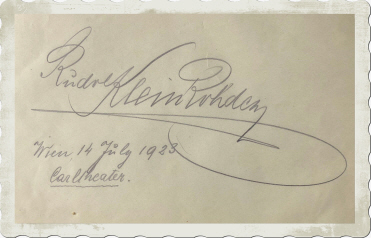 Rudolf KleinRohden
Wien, 14 July 1923
Carltheater.